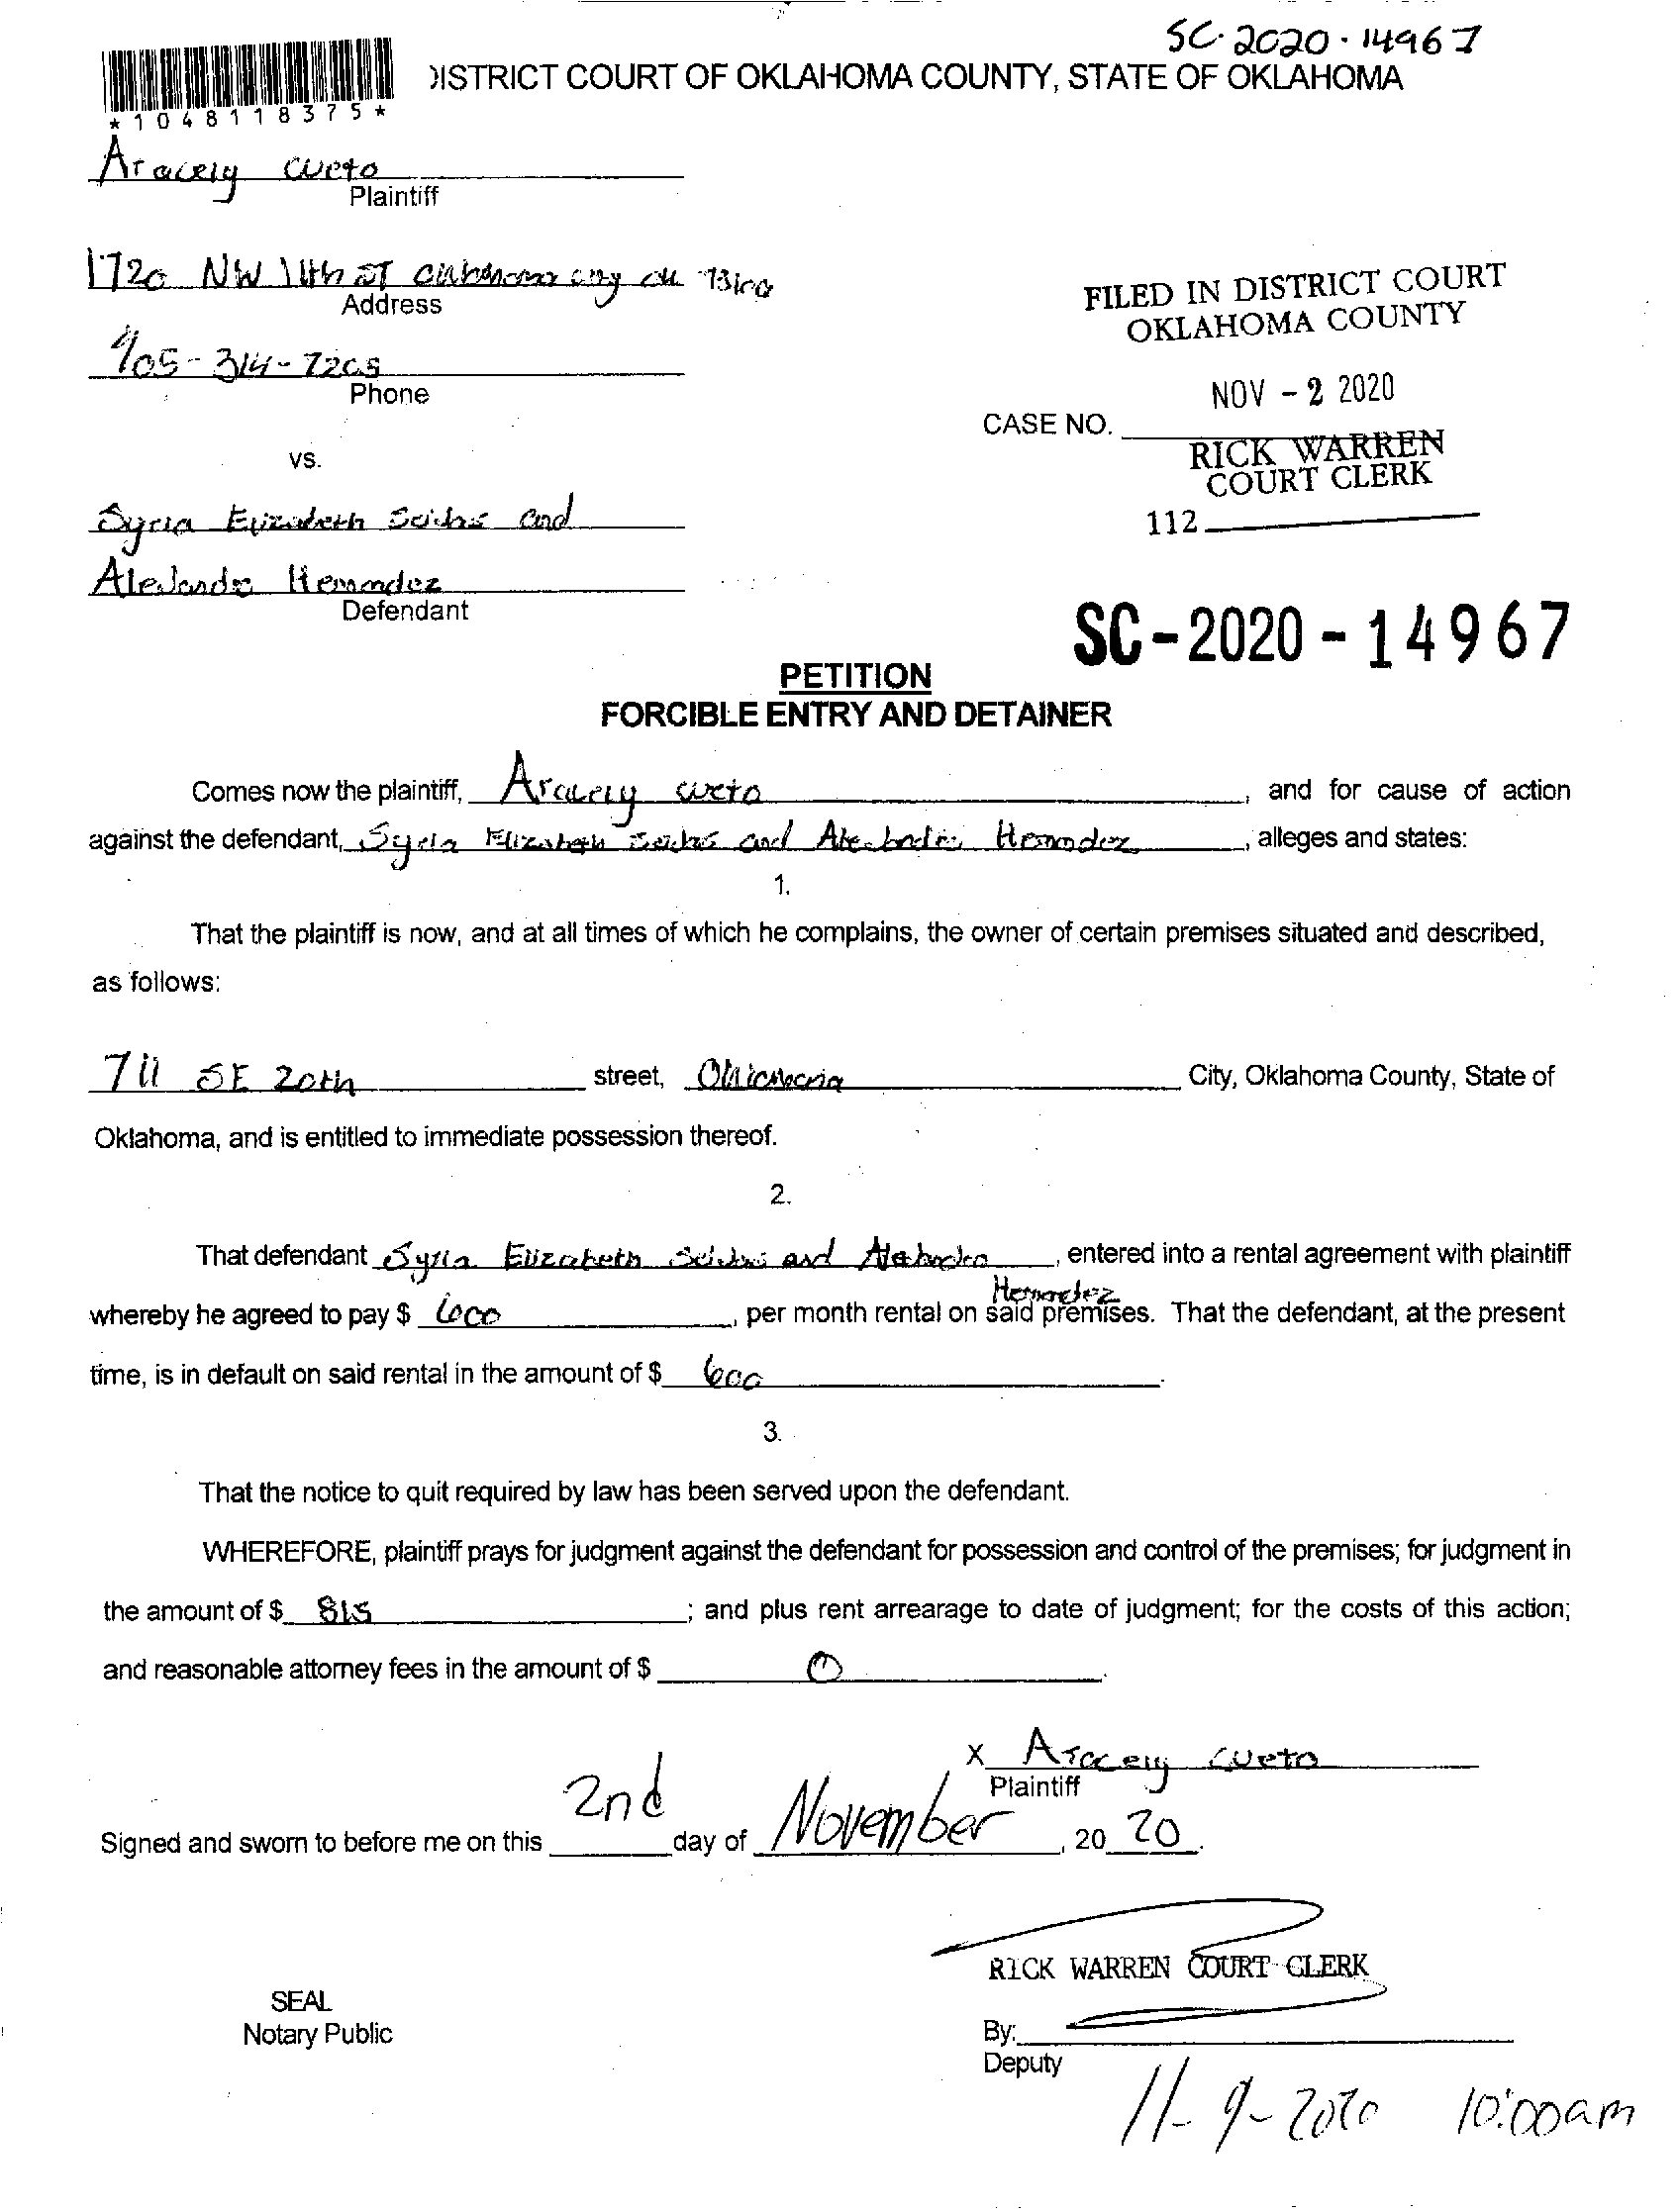 SC-2020-14967
DISTRICT COURT OF OKLAHOMA COUNTY, STATE OF OKLAHOMA
*1048118375*
Aracely Cueto
Plaintiff
1720 NW 11th ST Oklahoma city OK
Address
405-314-7205
Phone
FILED IN DISTRICT COURT
OKLAHOMA COUNTY
NOV - 2 2020
CASE NO.
RICK WARREN
COURT CLERK
112
vs.
Syria Elizabeth and
Alejandro Hernandez
Defendant
SC-2020-14967
PETITION
FORCIBLE ENTRY AND DETAINER
Comes now the plaintiff, Aracely Cueto, and for cause of action
against the defendant, Syria Elizabeth and Alejandro Hernandez, alleges and states:
1.
That the plaintiff is now, and at all times of which he complains, the owner of certain premises situated and described,
as follows:
711 SE 20th street, Oklahoma City, Oklahoma County, State of
Oklahoma, and is entitled to immediate possession thereof.
2.
That defendant Syria Elizabeth and Alejandro, entered into a rental agreement with plaintiff
Hernandez
whereby he agreed to pay $ 600, per month rental on said premises. That the defendant, at the present
time, is in default on said rental in the amount of $ 600.
3.
That the notice to quit required by law has been served upon the defendant.
WHEREFORE, plaintiff prays for judgment against the defendant for possession and control of the premises; for judgment in
the amount of $ 815; and plus rent arrearage to date of judgment; for the costs of this action;
and reasonable attorney fees in the amount of $ 0.
X Aracely Cueto
Plaintiff
Signed and sworn to before me on this 2nd day of November, 20 20.
RICK WARREN COURT CLERK
SEAL
Notary Public
By:
Deputy
11-9-2020 10:00am